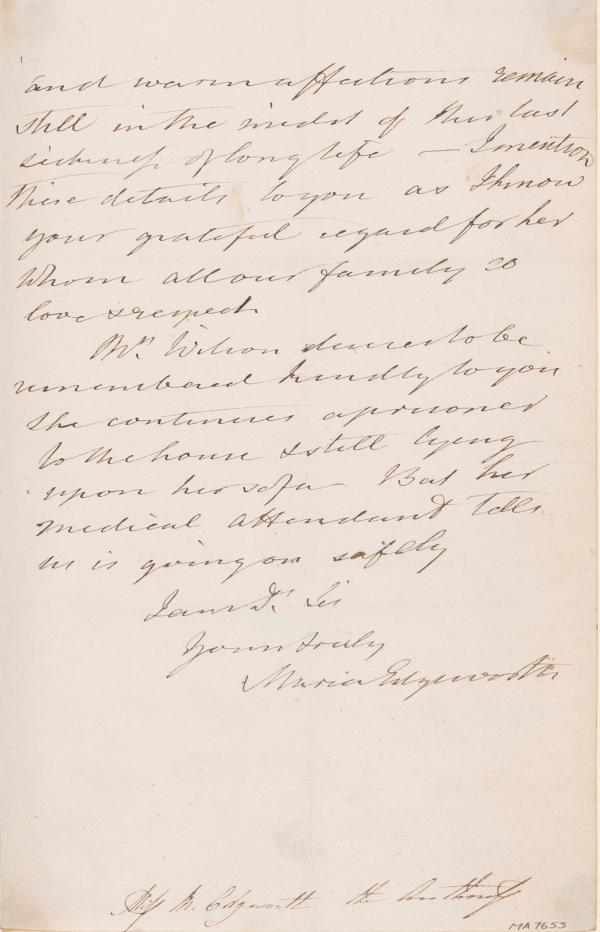 and warm affections remain
still in the midst of this last
sickness of long life — I mention
these details to you as I know
your grateful regard for her
whom all our family so
love & respect
Mrs. Wilson desires to be
remembered kindly to you
She continues a prisoner
to the house & still lying
upon her sofa – But her
medical attendant tells
us is going on safely
I am Dr. Sir
Yours truly
Maria Edgeworth
Miss M. Edgworth the Authoress
MA 7653